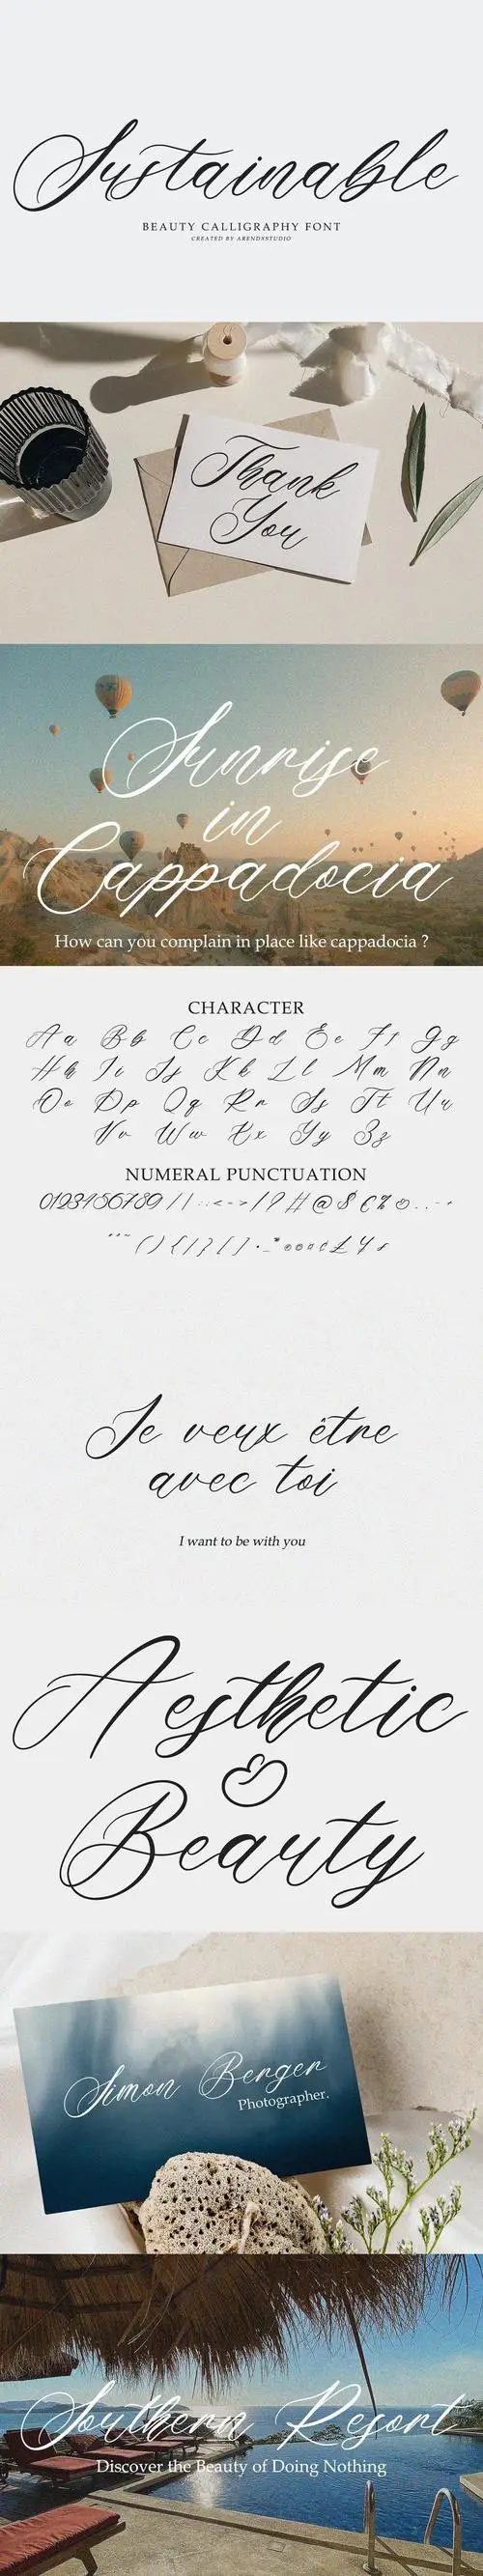 Sustainable
BEAUTY CALLIGRAPHY FONT
CREATED BY ARENDXSTUDIO
Thank
You
Sunrise
in
Cappadocia
How can you complain in place like cappadocia ?
CHARACTER
Aa Bb Cc Dd Ee Ff Gg
Hh Ii Jj Kk Ll Mm Nn
Oo Pp Qq Rr Ss Tt Uu
Vv Ww Xx Yy Zz
NUMERAL PUNCTUATION
0123456789 / | : ; < = > / ? # @ $ € %
( ) { | } [ ]
Je veux être
avec toi
I want to be with you
Aesthetic
&
Beauty
Simon Berger
Photographer.
Southern Resort
Discover the Beauty of Doing Nothing